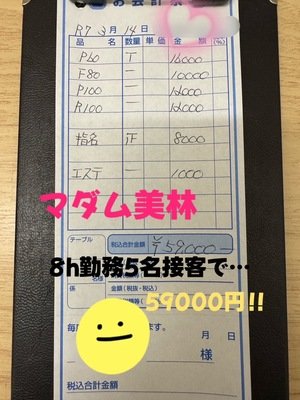 お会計票
R7 2月14日
品名 数量 単価 金額 (%)
P60 T 16000
F80 一 10000
P100 一 12000
R100 一 12000
指名 正 8000
エステ 一 1000
マダム美林
テーブル 税込合計金額 ￥59,000-
8h勤務5名接客で…
様 金額(税抜・税込)
59000円!!
毎度 ます。 月 日
様
税込合計金額